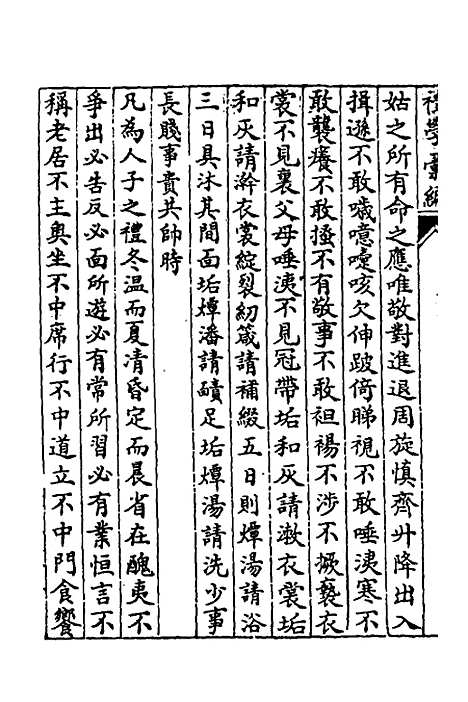 姑之所有命之應唯敬對進退周旋慎齊升降出入
揖遜不敢噦噫嚏咳欠伸跛倚睇視不敢唾洟寒不
敢襲癢不敢搔不有敬事不敢袒裼不涉不撅褻衣
裳不見裏父母唾洟不見冠帶垢和灰請漱衣裳垢
和灰請澣衣裳綻裂紉箴請補綴五日則燂湯請浴
三日具沐其間面垢燂潘請靧足垢燂湯請洗少事
長賤事貴共帥時
凡為人子之禮冬温而夏凊昏定而晨省在醜夷不
爭出必告反必面所遊必有常所習必有業恒言不
稱老居不主奧坐不中席行不中道立不中門食饗